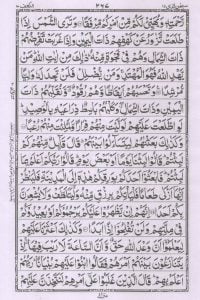 رَّحْمَتِهٖ وَيُهَيِّئْ لَكُمْ مِّنْ اَمْرِكُمْ مِّرْفَقًا وَتَرَى الشَّمْسَ اِذَا
طَلَعَتْ تَّزٰوَرُ عَنْ كَهْفِهِمْ ذَاتَ الْيَمِيْنِ وَاِذَا غَرَبَتْ تَّقْرِضُهُمْ
ذَاتَ الشِّمَالِ وَهُمْ فِيْ فَجْوَةٍ مِّنْهُ ذٰلِكَ مِنْ اٰيٰتِ اللّٰهِ مَنْ
يَّهْدِ اللّٰهُ فَهُوَ الْمُهْتَدِ وَمَنْ يُّضْلِلْ فَلَنْ تَجِدَ لَهٗ وَلِيًّا
مُّرْشِدًا وَتَحْسَبُهُمْ اَيْقَاظًا وَّهُمْ رُقُوْدٌ وَّنُقَلِّبُهُمْ ذَاتَ
الْيَمِيْنِ وَذَاتَ الشِّمَالِ وَكَلْبُهُمْ بَاسِطٌ ذِرَاعَيْهِ بِالْوَصِيْدِ
لَوِ اطَّلَعْتَ عَلَيْهِمْ لَوَلَّيْتَ مِنْهُمْ فِرَارًا وَّلَمُلِئْتَ مِنْهُمْ رُعْبًا
وَكَذٰلِكَ بَعَثْنٰهُمْ لِيَتَسَآءَلُوْا بَيْنَهُمْ قَالَ قَآئِلٌ مِّنْهُمْ كَمْ
لَبِثْتُمْ قَالُوْا لَبِثْنَا يَوْمًا اَوْ بَعْضَ يَوْمٍ قَالُوْا رَبُّكُمْ اَعْلَمُ بِمَا
لَبِثْتُمْ فَابْعَثُوْٓا اَحَدَكُمْ بِوَرِقِكُمْ هٰذِهٖٓ اِلَى الْمَدِيْنَةِ فَلْيَنْظُرْ
اَيُّهَآ اَزْكٰى طَعَامًا فَلْيَاْتِكُمْ بِرِزْقٍ مِّنْهُ وَلْيَتَلَطَّفْ وَلَا يُشْعِرَنَّ
بِكُمْ اَحَدًا اِنَّهُمْ اِنْ يَّظْهَرُوْا عَلَيْكُمْ يَرْجُمُوْكُمْ اَوْ يُعِيْدُوْكُمْ
فِيْ مِلَّتِهِمْ وَلَنْ تُفْلِحُوْٓا اِذًا اَبَدًا وَكَذٰلِكَ اَعْثَرْنَا عَلَيْهِمْ
لِيَعْلَمُوْٓا اَنَّ وَعْدَ اللّٰهِ حَقٌّ وَّاَنَّ السَّاعَةَ لَا رَيْبَ فِيْهَا اِذْ
يَتَنَازَعُوْنَ بَيْنَهُمْ اَمْرَهُمْ فَقَالُوا ابْنُوْا عَلَيْهِمْ بُنْيَانًا رَبُّهُمْ
اَعْلَمُ بِهِمْ قَالَ الَّذِيْنَ غَلَبُوْا عَلٰٓى اَمْرِهِمْ لَنَتَّخِذَنَّ عَلَيْهِمْ